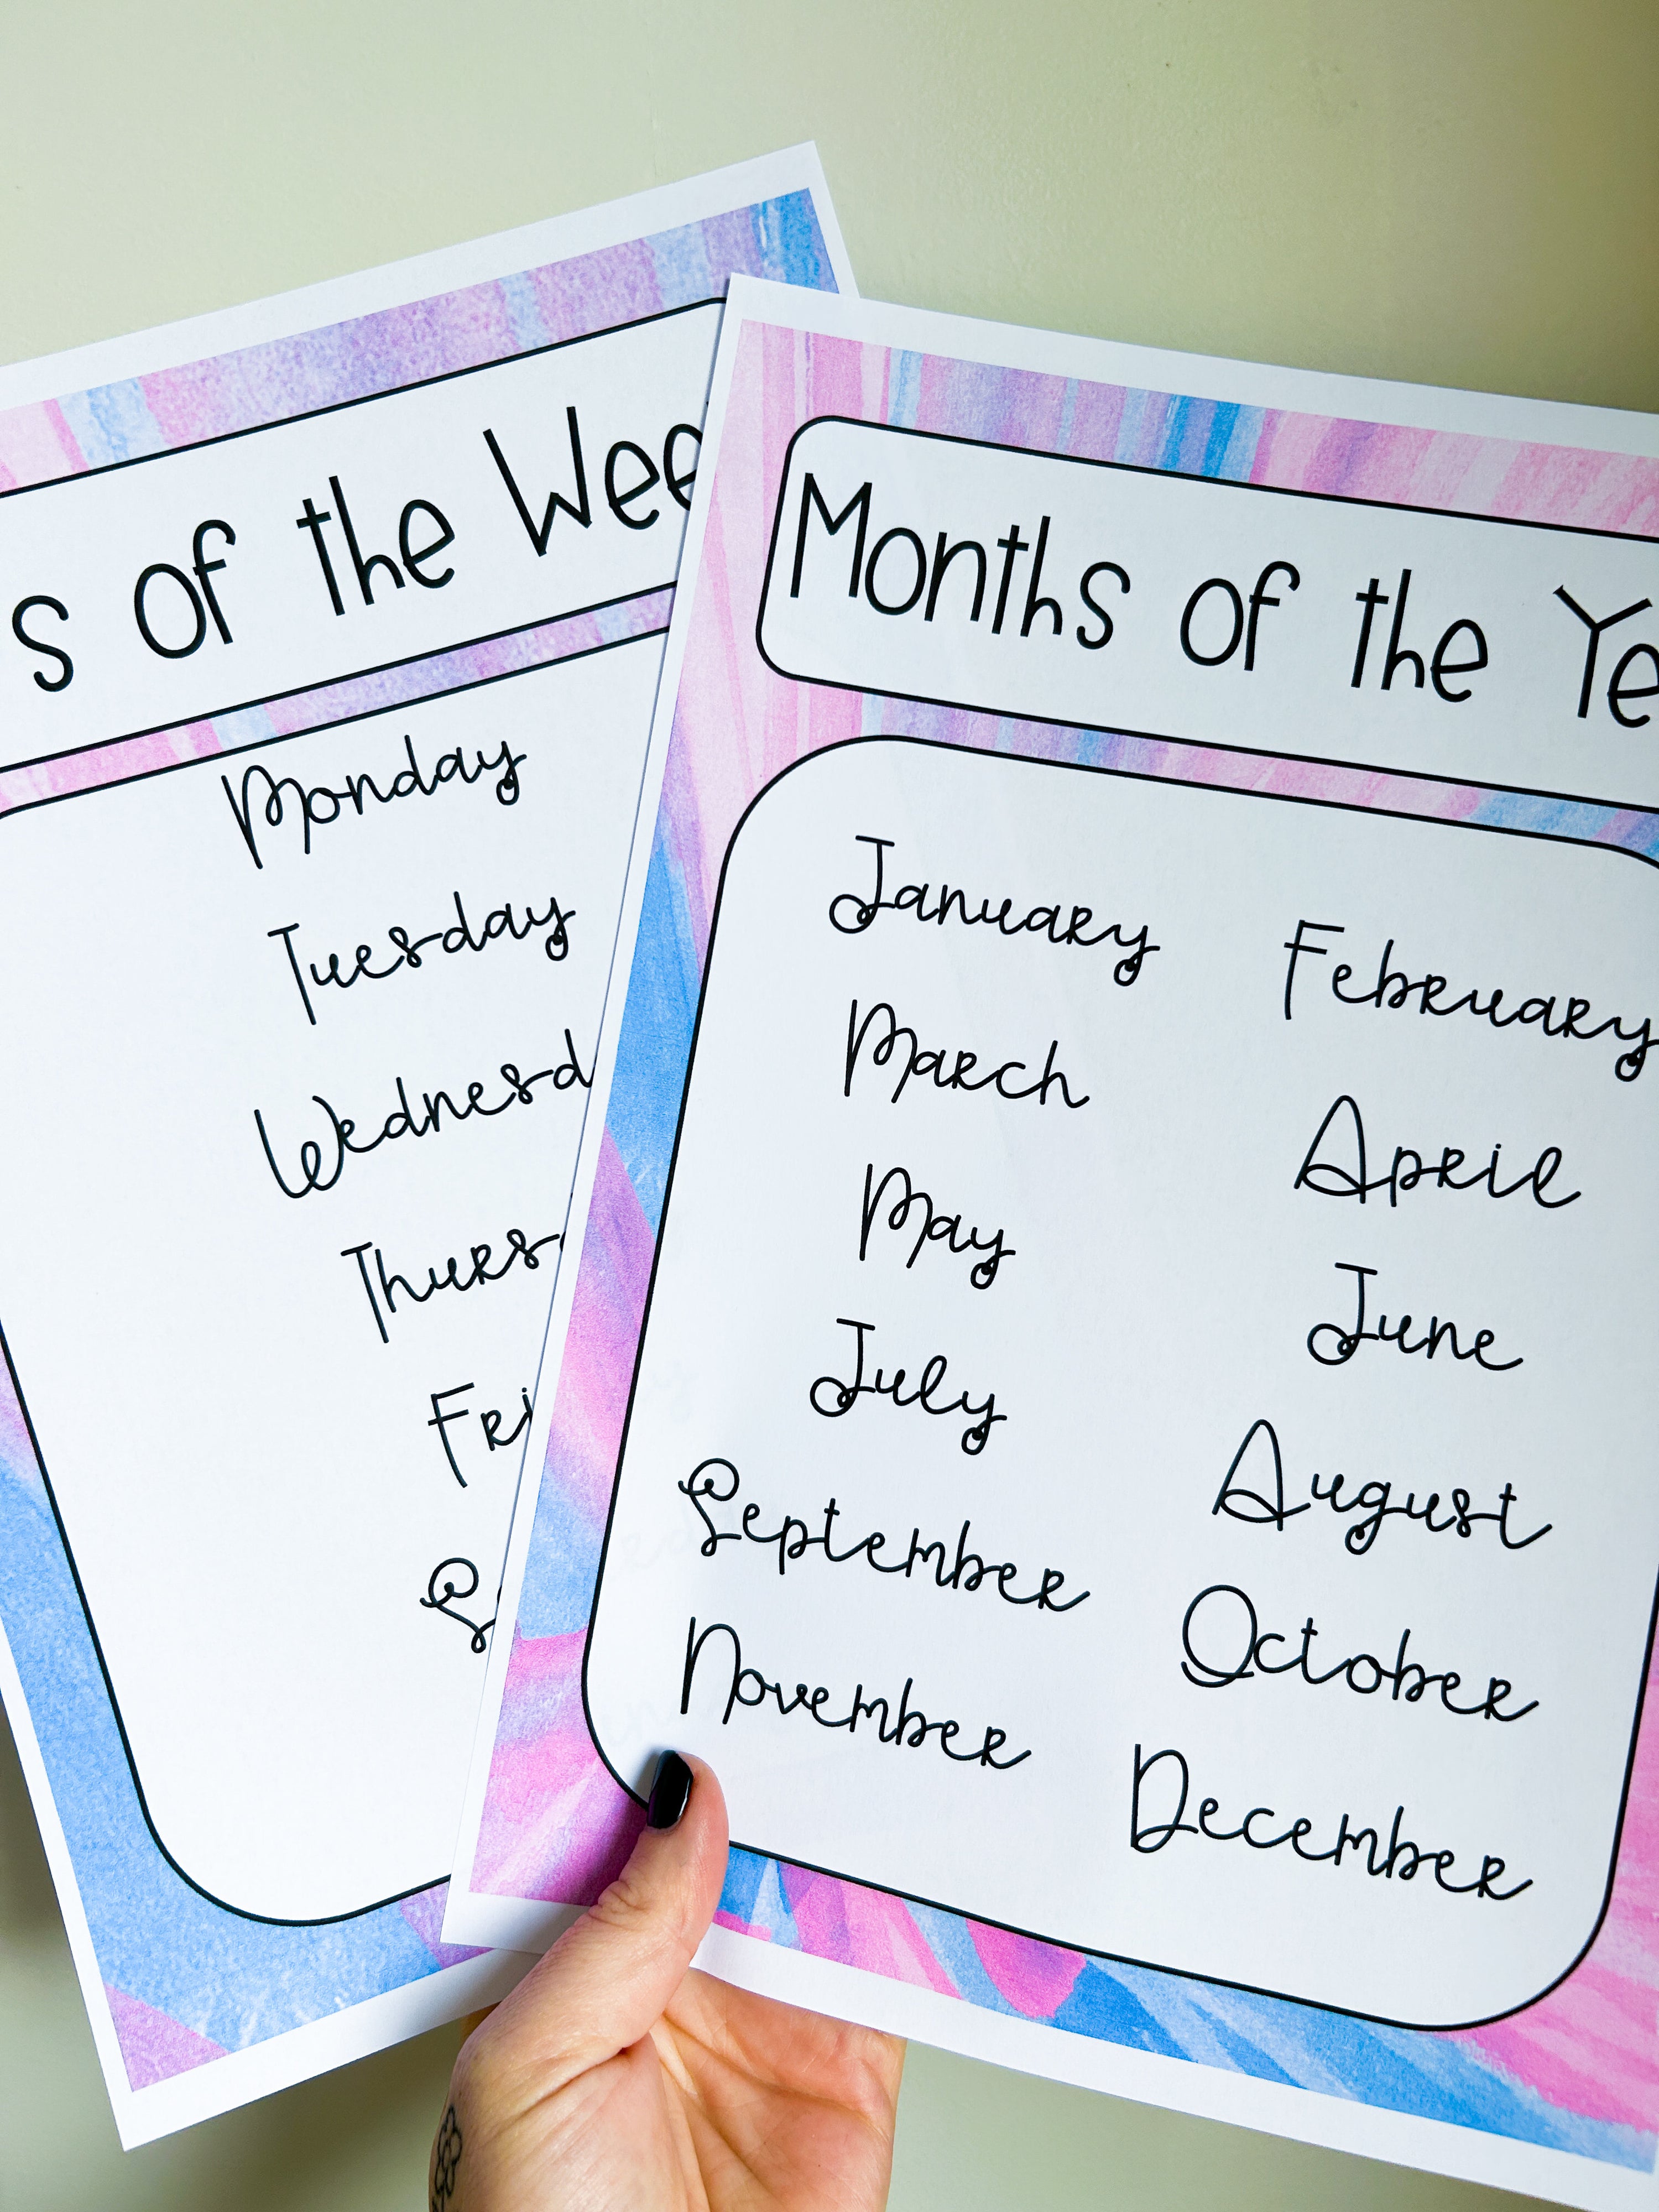 s of the Wee
Monday
Tuesday
Wednesd
Thurs
Fri
S
Months of the Ye
January February
March April
May June
July August
September October
November December